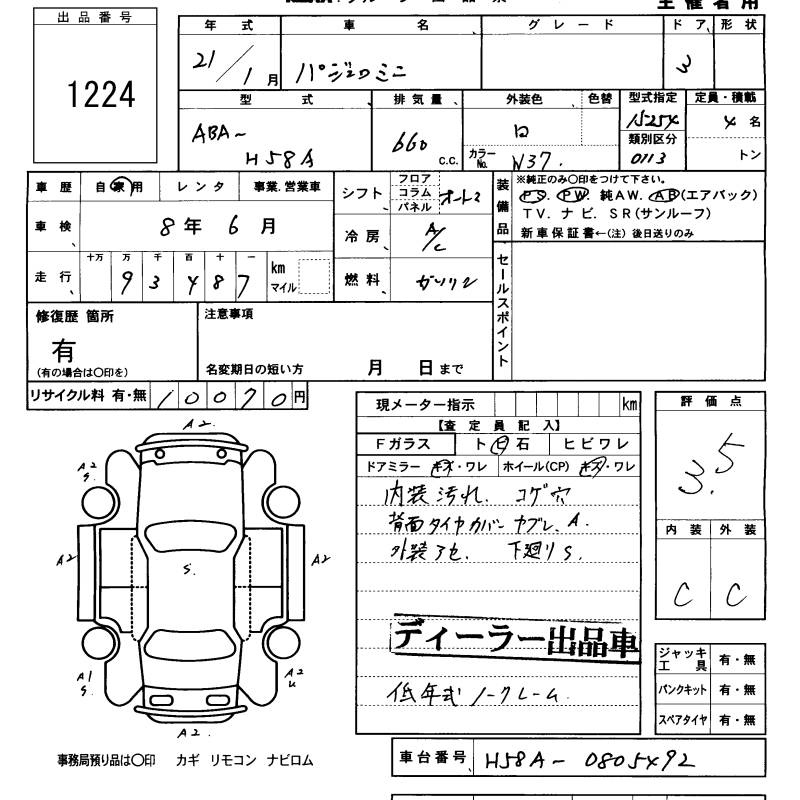 主催者用
出品番号
1224
年式 車名 グレード ドア、形状
21/1月 パジェロミニ 3
型式 排気量、 外装色 色替 型式指定 定員・積載
ABA- H58A 660 C.C. カラーNo. W37. 15254 4名
類別区分 0113 トン
車歴 自家用 レンタ 事業.営業車
シフト フロア コラム パネル
装備品 ※純正のみ○印をつけて下さい。
PS. PW. 純AW. AB(エアバック)
TV. ナビ. SR(サンルーフ)
新車保証書←(注)後日送りのみ
車検、 8年6月
冷房、 A/C
走行、 十万 万 千 百 十 一
93487 km マイル
燃料、 ガソリン
セールスポイント
修復歴 箇所
有
(有の場合は○印を)
注意事項
名変期日の短い方 月 日まで
リサイクル料 有・無 10070円
現メーター指示 km
【査定員記入】
Fガラス ト ビ 石 ヒビワレ
ドアミラー キズ・ワレ ホイール(CP) キズ・ワレ
内装汚れ. コゲ穴
背面タイヤカバー ヤブレ. A.
外装アセ. 下廻りS.
ディーラー出品車
低年式ノークレーム.
評価点
3.5
内装 外装
C C
A2.
A2 S.
A2 S. A2
A1 S. A2 U
A2.
ジャッキ 工具 有・無
パンクキット 有・無
スペアタイヤ 有・無
事務局預り品は○印 カギ リモコン ナビロム
車台番号、 H58A-0805492